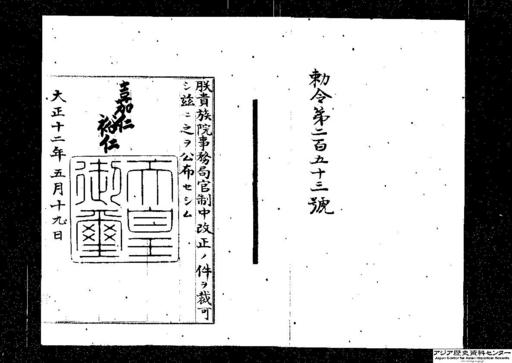 勅令第二百五十三號
朕貴族院事務局官制中改正ノ件ヲ裁可
シ茲ニ之ヲ公布セシム
嘉仁
裕仁
天皇御璽
大正十二年五月十九日
アジア歴史資料センター
Japan Center for Asian Historical Records